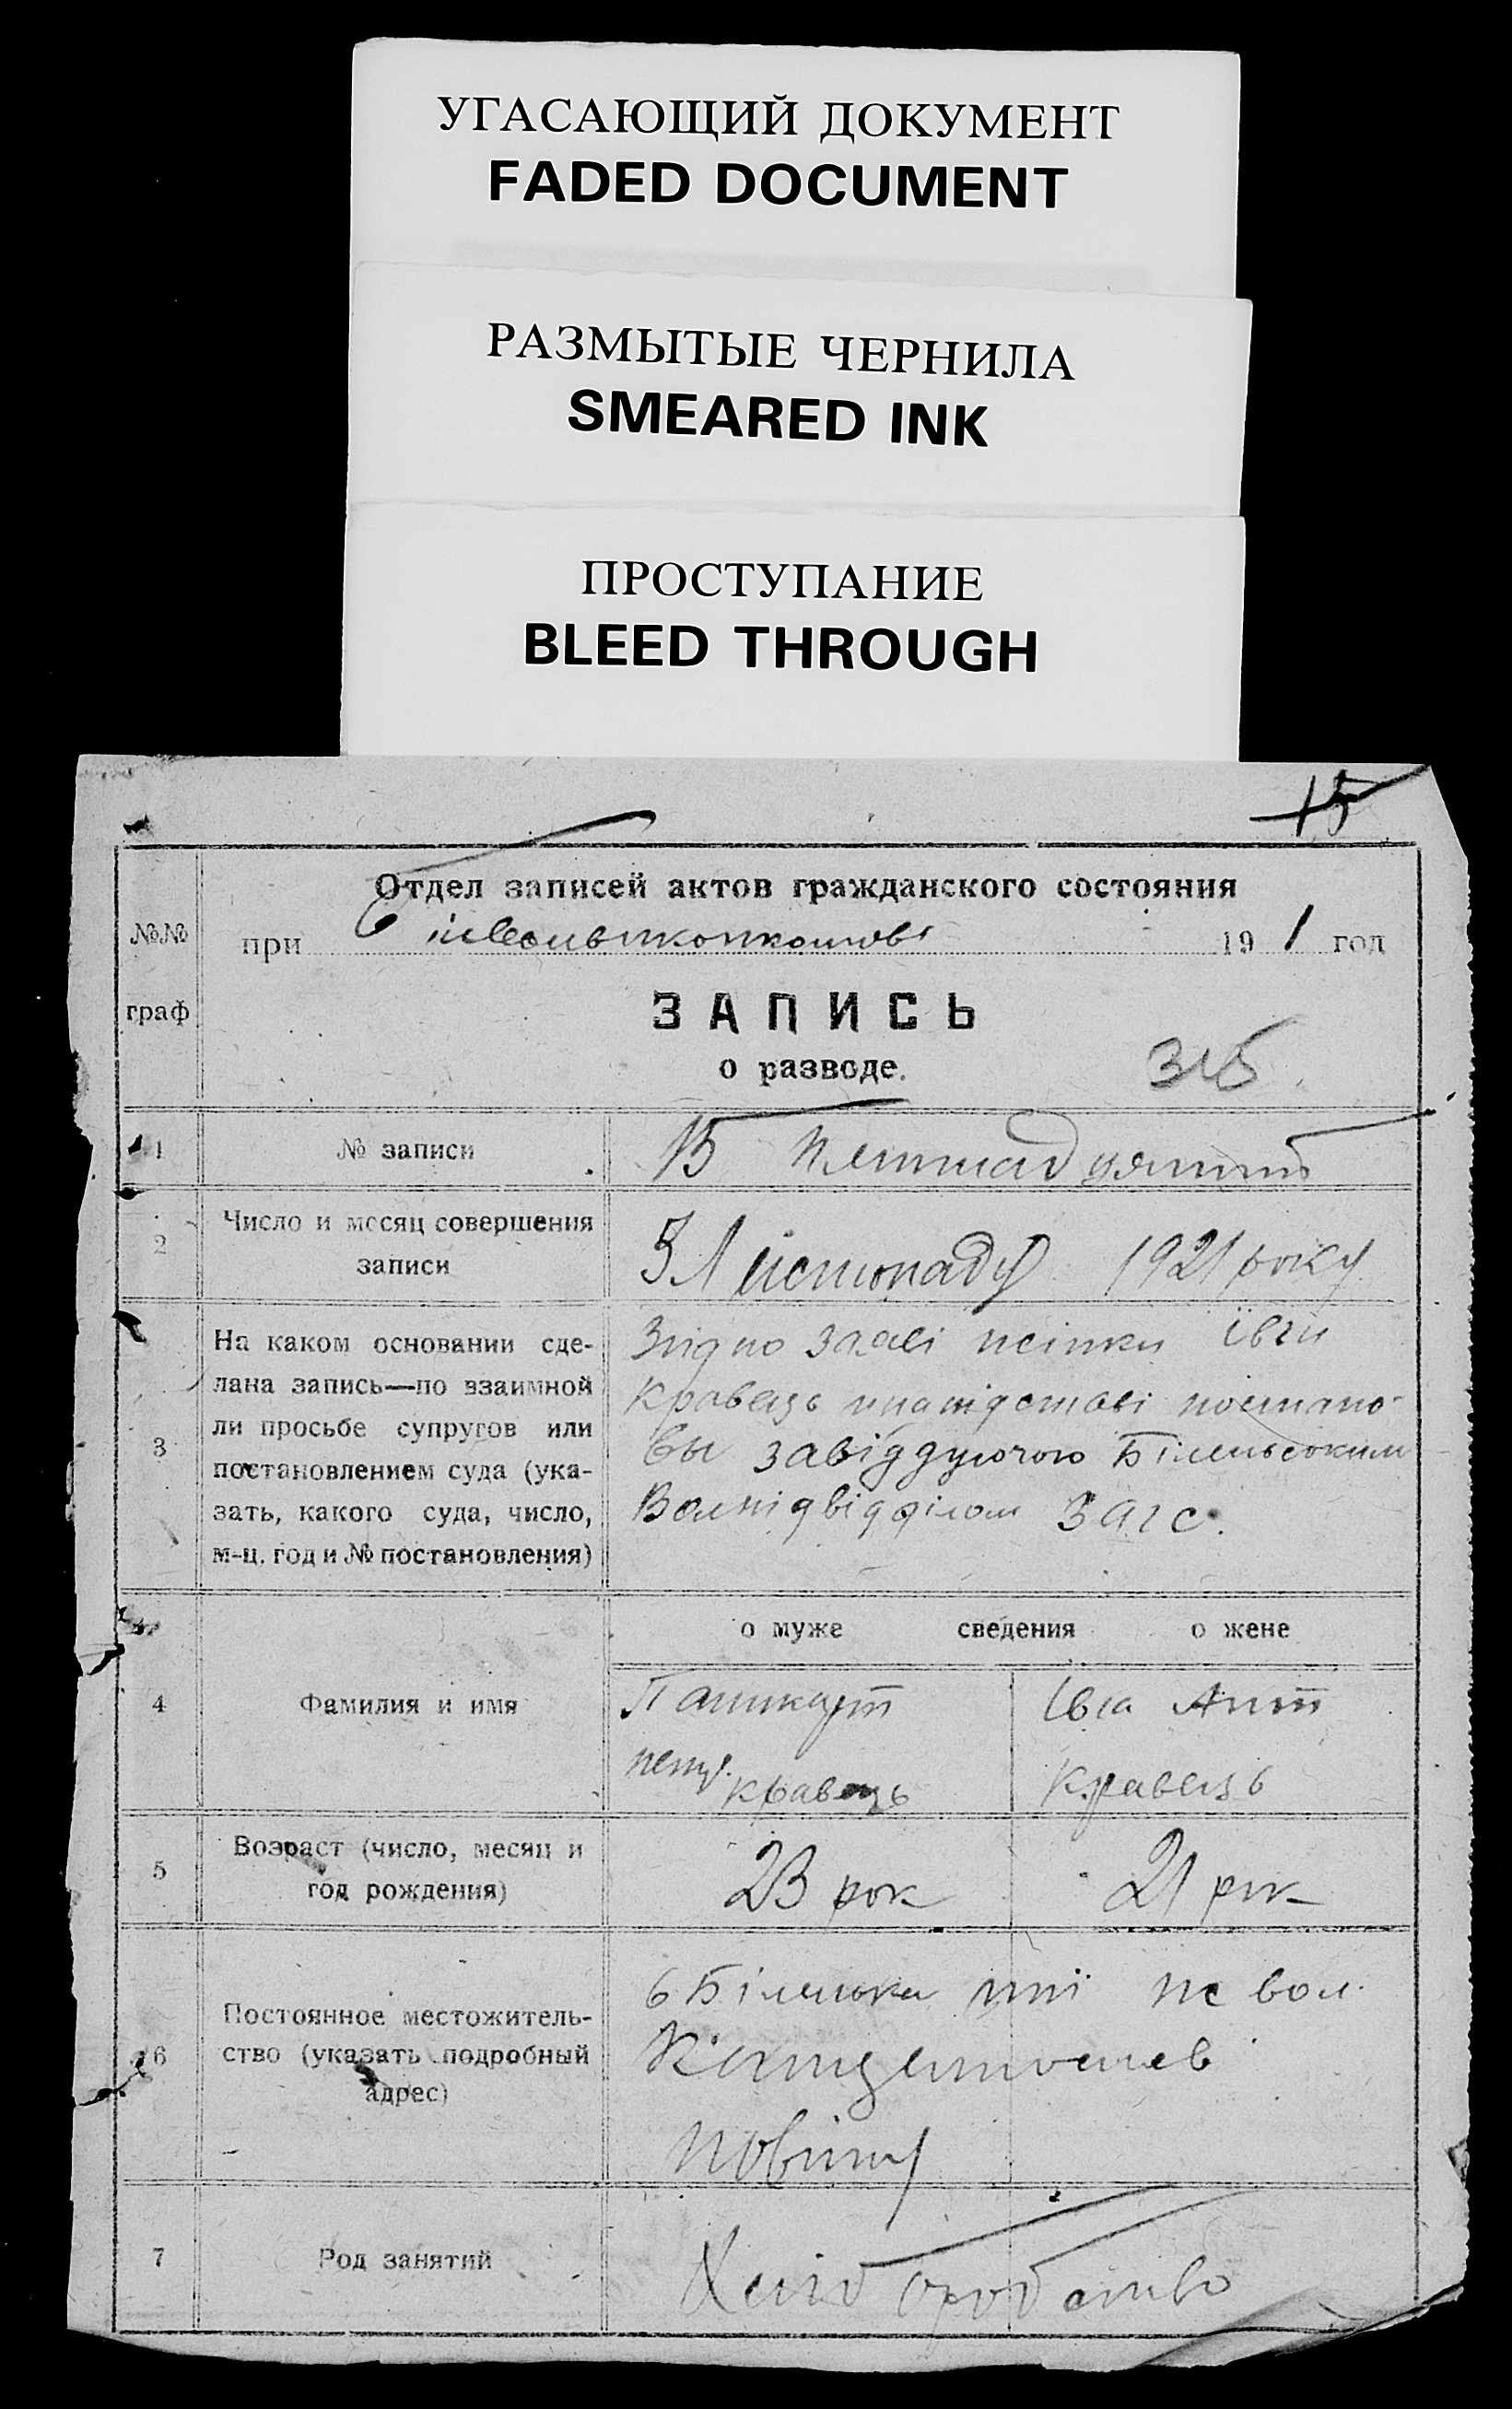 УГАСАЮЩИЙ ДОКУМЕНТ
FADED DOCUMENT
РАЗМЫТЫЕ ЧЕРНИЛА
SMEARED INK
ПРОСТУПАНИЕ
BLEED THROUGH
15
Отдел записей актов гражданского состояния
№№ при 19 1 год
граф
ЗАПИСЬ
о разводе.
315
1 № записи 15
2 Число и месяц совершения
записи
5 Листопаду 1921 року
3 На каком основании сде-
лана запись—по взаимной
ли просьбе супругов или
постановлением суда (ука-
зать, какого суда, число,
м-ц. год и № постановления)
Згідно заяві жінки Ївги
Кравець на підставі постано-
вы завіддуючого
Волпідвідділом ЗАГС.
о муже сведения о жене
4 Фамилия и имя
Кравець
Івга Ант
Кравець
5 Возраст (число, месяц и
год рождения)
23 рок 21 рік
6 Постоянное местожитель-
ство (указать подробный
адрес)
вол.
повіту
7 Род занятий
Хліборобство